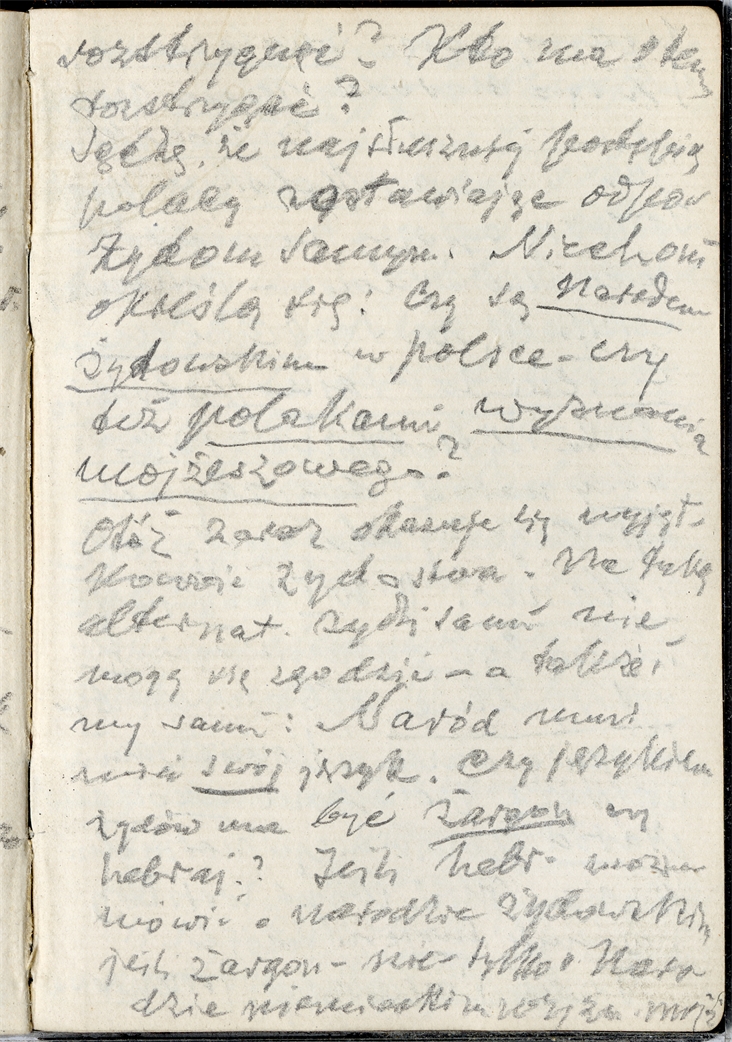 rozstrzygnąć? Kto ma o tem
rozstrzygać?
Sądzę, że najsłuszniej postąpią
polacy zostawiając odpow
żydom samym. Niech oni
określą się: Czy są narodem
żydowskim w polsce - czy
też polakami wyznania
mojżeszowego?
Otóż zaraz okazuje się wyjąt-
kowość żydostwa. Na taką
alternat. żydzi sami nie
mogą się zgodzić - a także i
my sami: Naród musi
mieć swój język. Czy językiem
żydów ma być żargon czy
hebraj.? Jeśli hebr. można
mówić o narodzie żydowskim
jeśli żargon - nie - tylko o naro
dzie niemieckim wyzn. mojż